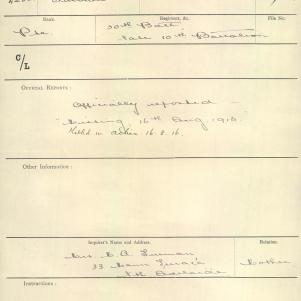 Regiment, &c.
File No.
Pte.
50th Batt
late 10th Battalion
C/L
OFFICIAL REPORTS:
Officially reported -
"Missing 16th Aug 1916."
Killed in action 16.8.16.
Other Information:
Inquirer's Name and Address.
Relation
Mrs
33
Mother
Nth Adelaide
Instructions: